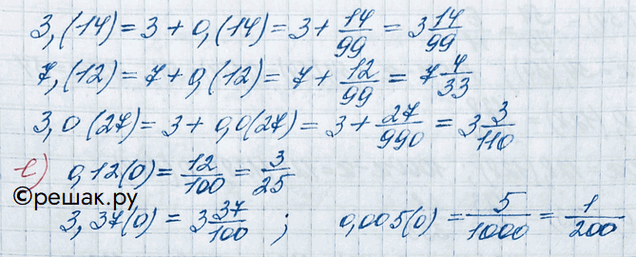 3,(14) = 3 + 0,(14) = 3 + 14/99 = 3 14/99
7,(12) = 7 + 0,(12) = 7 + 12/99 = 7 4/33
3,0(27) = 3 + 0,0(27) = 3 + 27/990 = 3 3/110
е) 0,12(0) = 12/100 = 3/25
©решак.ру
3,37(0) = 3 37/100 ; 0,005(0) = 5/1000 = 1/200